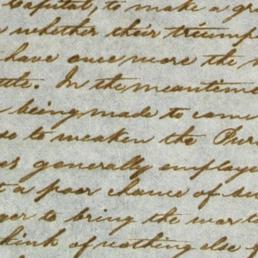 Caputet, to make a gr
whether their triump
have once more the
ttle. In the meantime
being made to come
so to weaken the Pur
es generelly employe
t a poor chance of su
ger to bring the war to
think of nothing else